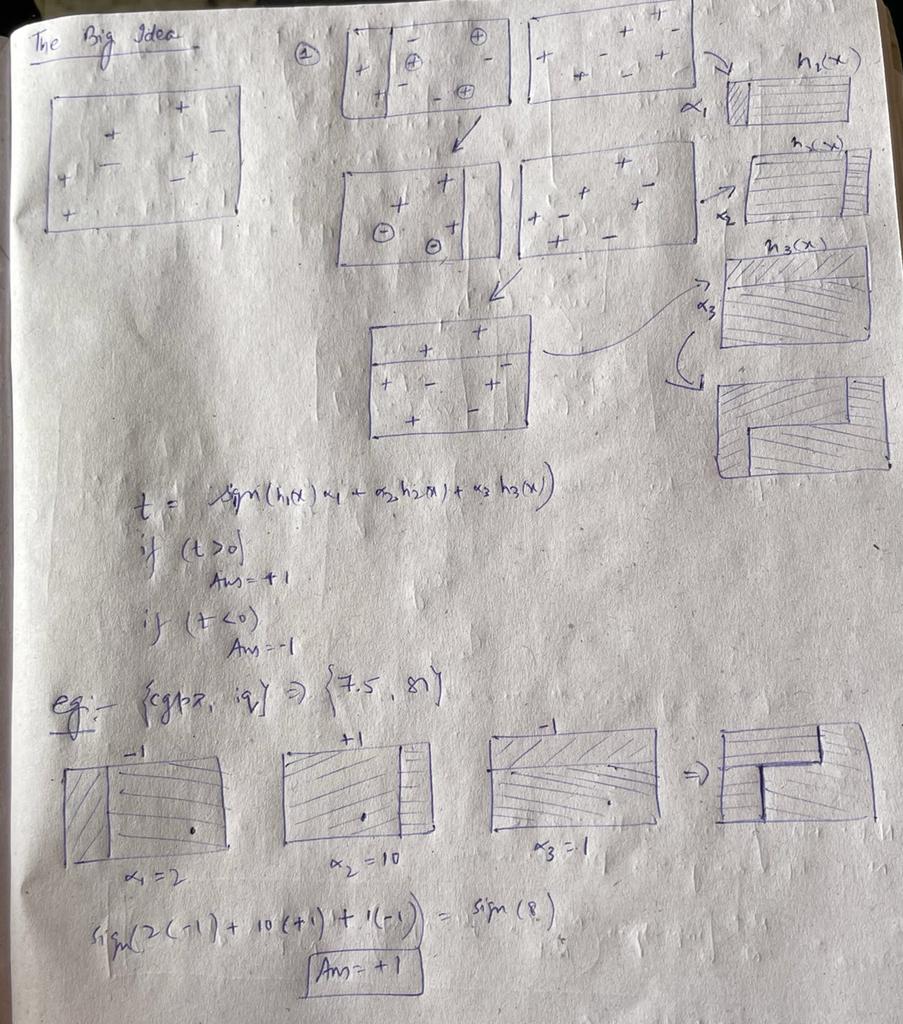 The Big Idea
①
h₁(x)
α₁
h₂(x)
α₂
h₃(x)
α₃
t = sign(h₁(x) α₁ + α₂ h₂(x) + α₃ h₃(x))
if (t >0)
Ans = +1
if (t <0)
Ans = -1
eg:- {cgpa, iq} => {7.5, 81}
-1 +1 -1
α₁ = 2 α₂ = 10 α₃ = 1
sign(2(-1) + 10(+1) + 1(-1)) = sign(8)
Ans = +1